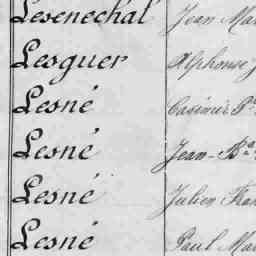 Lesenechal Jean Mar
Lesguer Alphonse J
Lesné Casimir P.
Lesné Jean-Bte
Lesné Julien Fran
Lesné Paul Mar